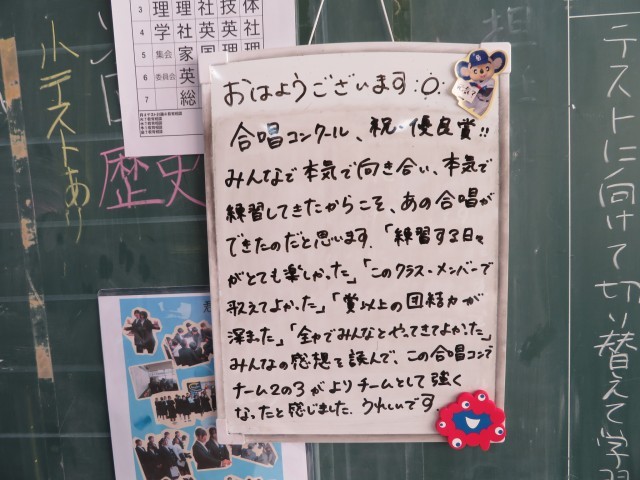 小テストあり
歴史
3 科 業 社 技 体
4 理 社 英 英 社
5 集会 家 英 理 理
6 委員会 英 国
7 総
おはようございます
合唱コンクール、祝・優良賞!!
みんなで本気で向き合い、本気で
練習してきたからこそ、あの合唱が
できたのだと思います。「練習する日々
がとても楽しかった」「このクラス・メンバーで
歌えてよかった」「賞以上の団結力が
深まった」「全力でみんなとやってきてよかった」
みんなの感想を読んで、この合唱コンで
チーム2の3がよりチームとして強く
なったと感じました。うれしいです。
テストに向けて切り替えて学習